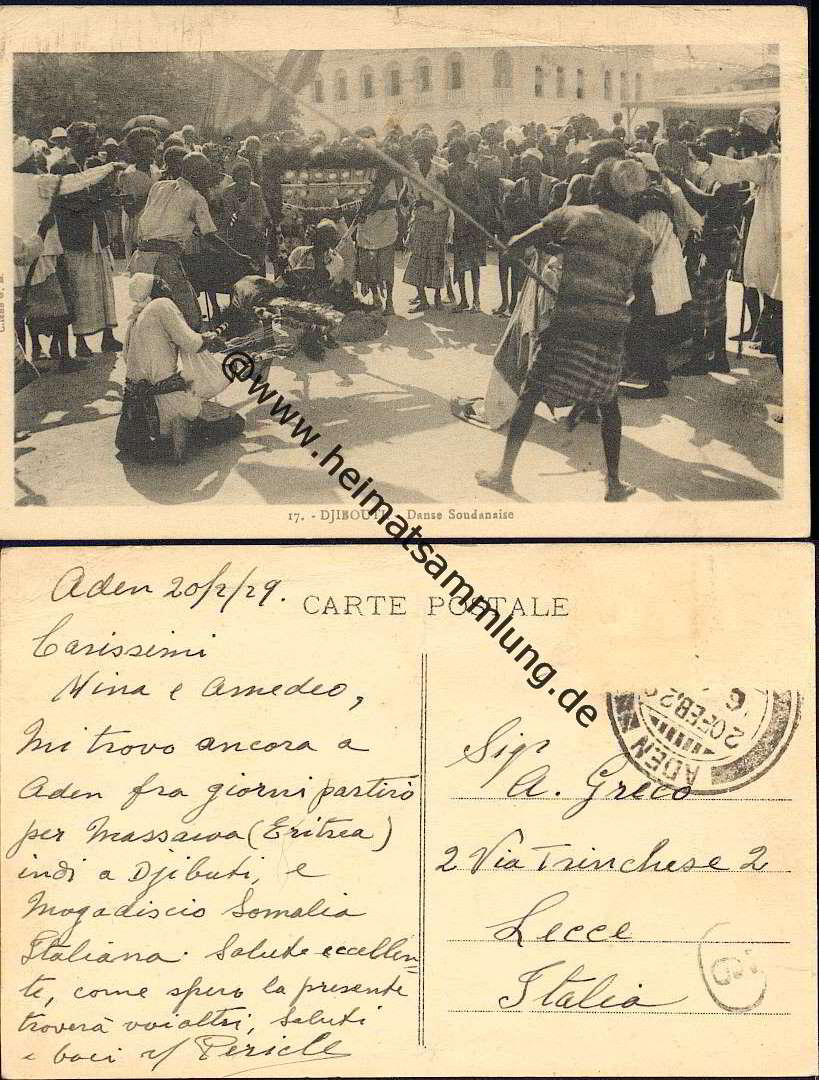 17. - DJIBOUTI - Danse Soudanaise
@www.heimatsammlung.de
CARTE POSTALE
Aden 20/2/29.
Carissimi
Nina e Amedeo,
Mi trovo ancora a
Aden fra giorni partirò
per Massawa (Eritrea)
indi a Djibuti, e
Mogadiscio Somalia
Italiana. Salute eccellen-
te, come spero la presente
troverà voi altri, Saluti
e baci v/ Pericle
ADEN
20 FEB. 2
Sigr
A. Greco
2 Via Trinchese 2
Lecce
Italia